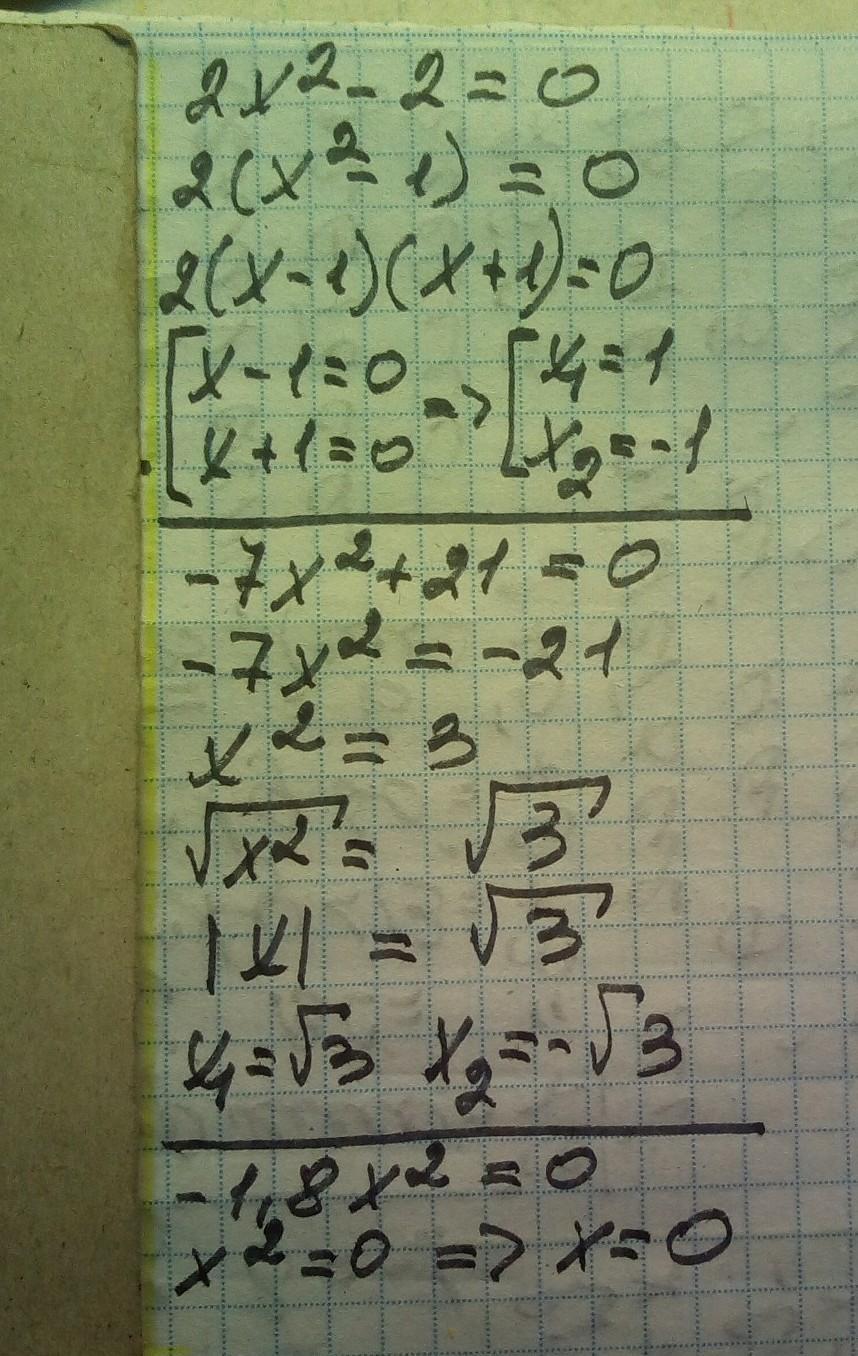 2x² - 2 = 0
2(x² - 1) = 0
2(x - 1)(x + 1) = 0
[x - 1 = 0 => [x₁ = 1
x + 1 = 0 x₂ = -1
-7x² + 21 = 0
-7x² = -21
x² = 3
√x² = √3
|x| = √3
x₁ = √3 x₂ = -√3
-1,8x² = 0
x² = 0 => x = 0